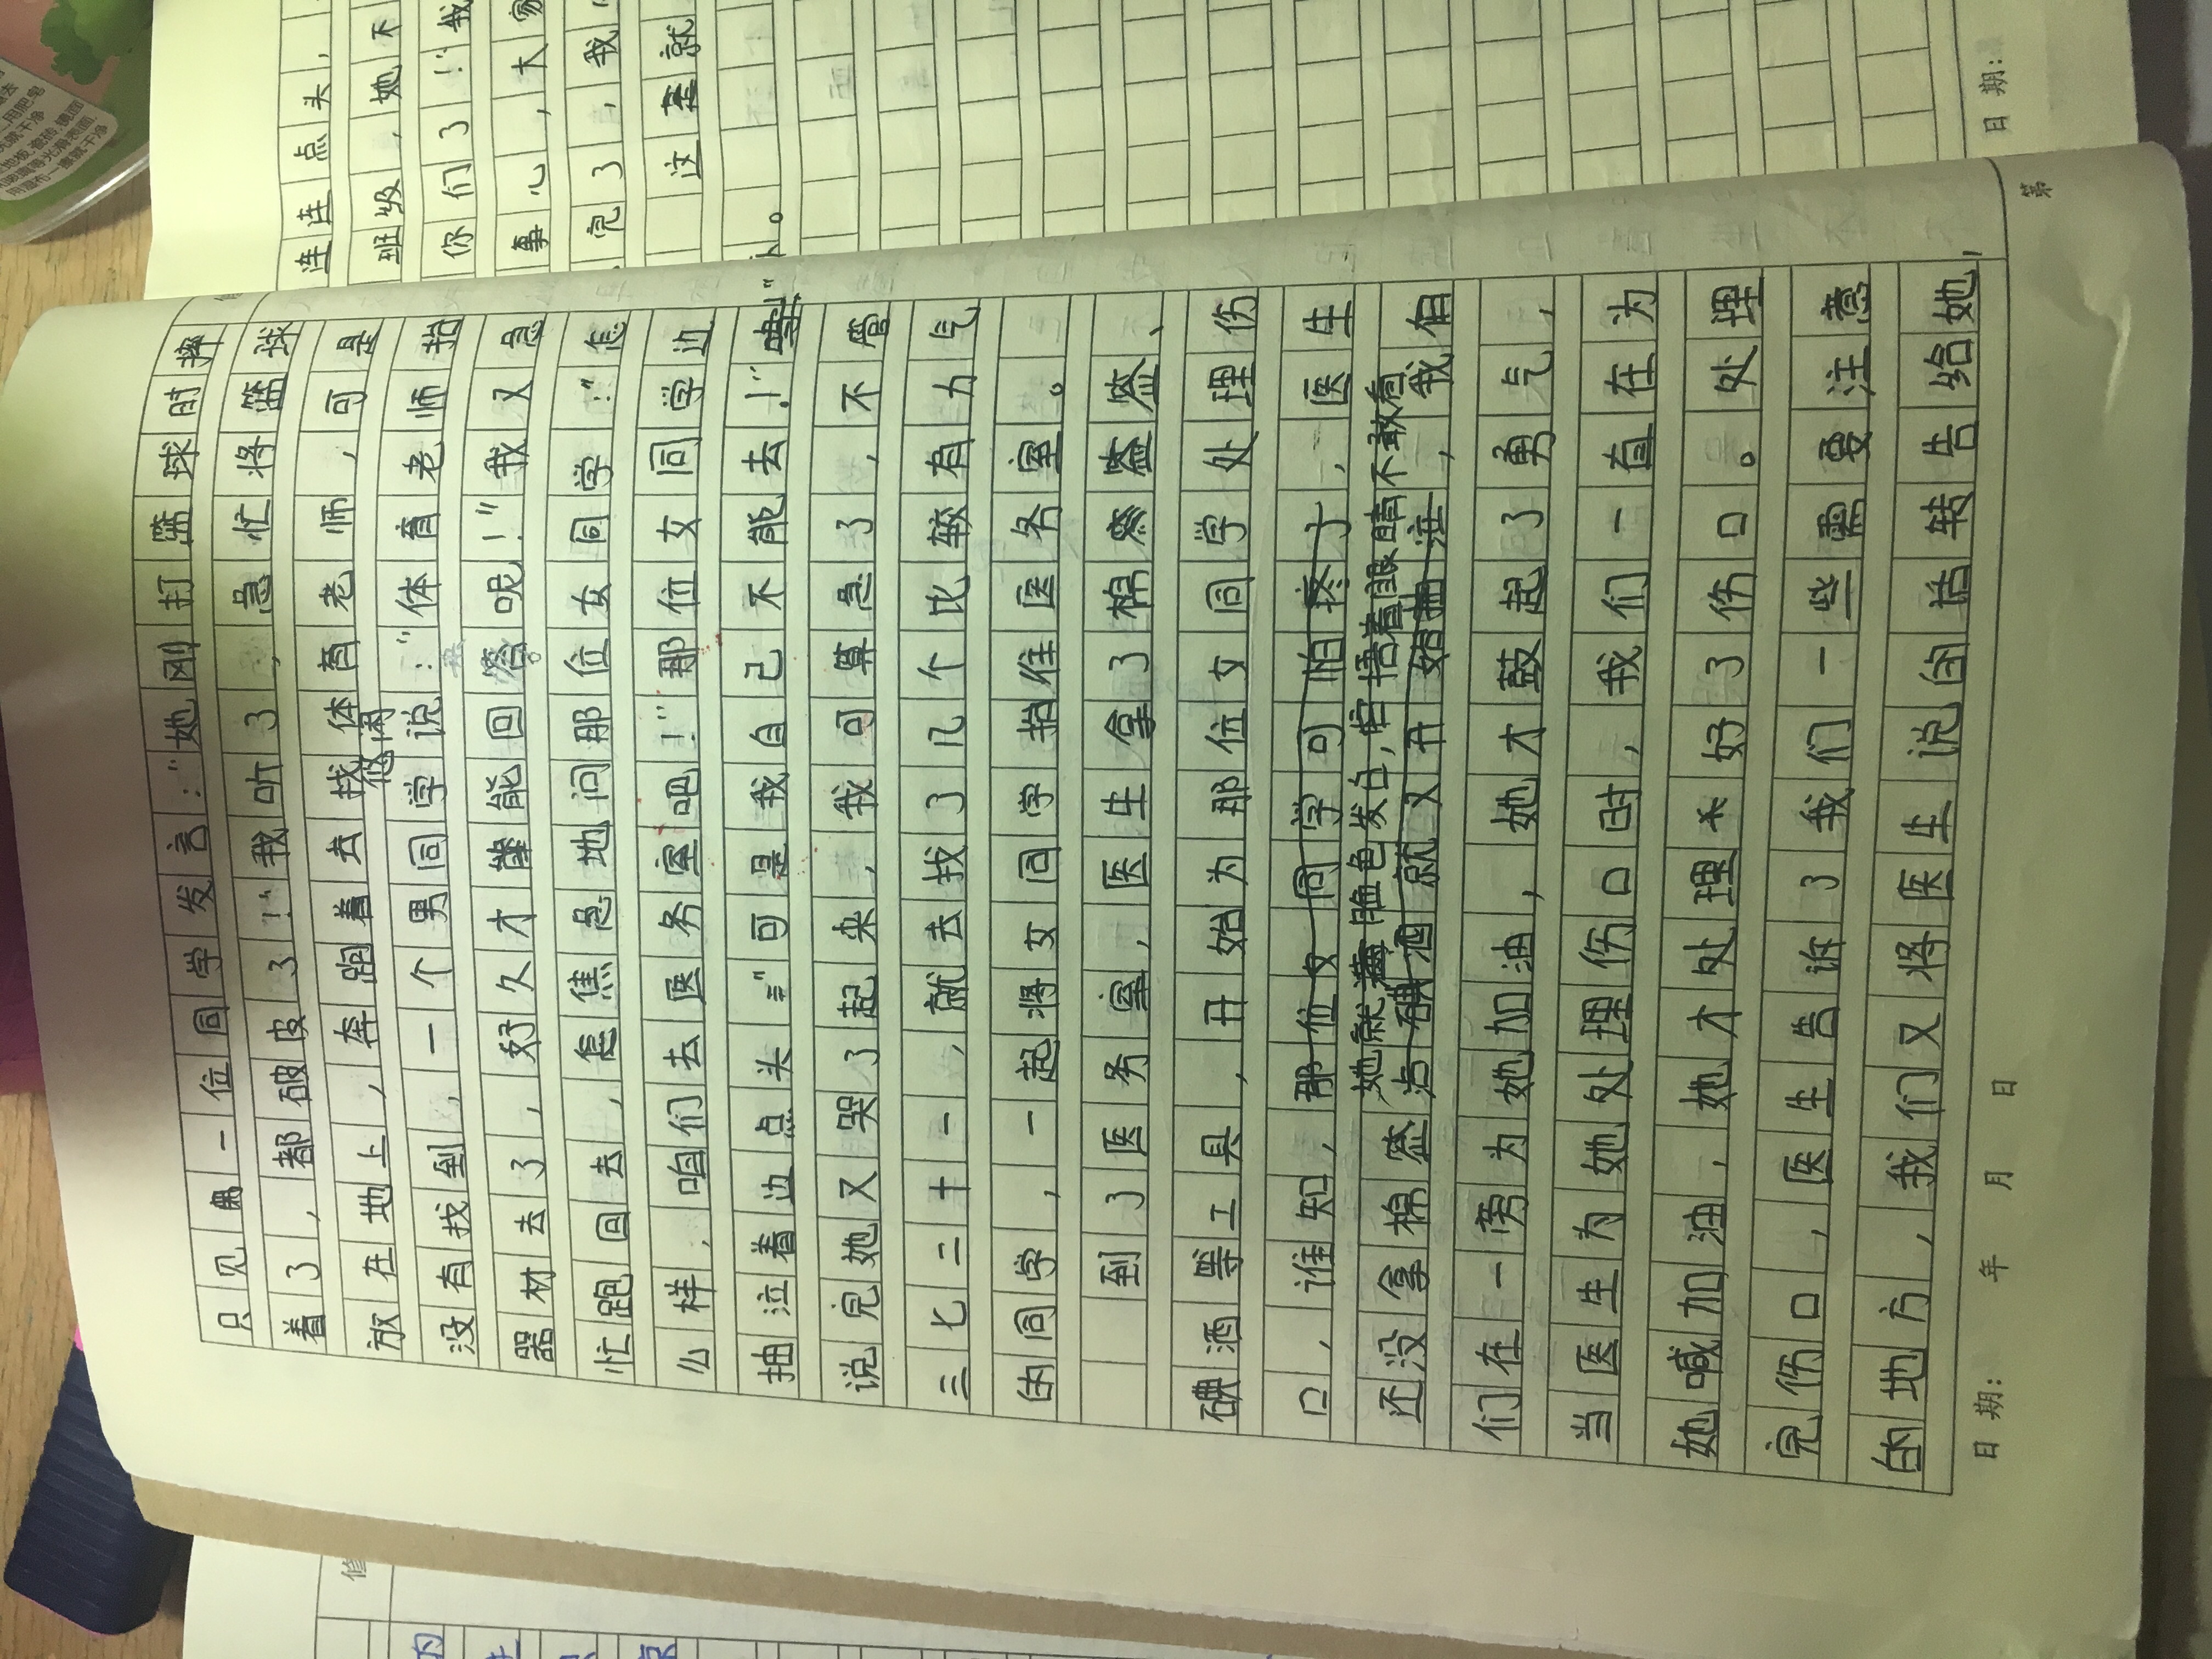 只见一位同学发言：“她刚打篮球时摔
着了，都破皮了！”我听了，急忙将篮球
放在地上，奔跑着去找体育老师，可是
没有找到，一个男同学悠闲说：“体育老师抬
器材去了，好久才能回答呢！”我又急
忙跑回去，焦急地问那位女同学：“怎
么样，咱们去医务室吧！”那位女同学边
抽泣着边点头：“可是我自己不能去！”
说完她又哭了起来，我可算急了，不管
三七二十一，就去找了几个比较有力气
的同学，一起将女同学抬往医务室。
到了医务室，医生拿了棉签、
碘酒等工具，开始为那位女同学处理伤
口，谁知，医生
还没拿棉签她就脸色发白，捂着眼睛不敢看，我们
们在一旁为她加油，她才鼓起了勇气，
当医生为她处理伤口时，我们一直在为
她喊加油，她才处理好了伤口。处理
完伤口，医生告诉了我们一些需要注意
的地方，我们又将医生说的话转告给她，
日期： 年 月 日
第
连连点头，
班级，她不
你们了！”我
事心，大家
完了，我
这是就
日期：